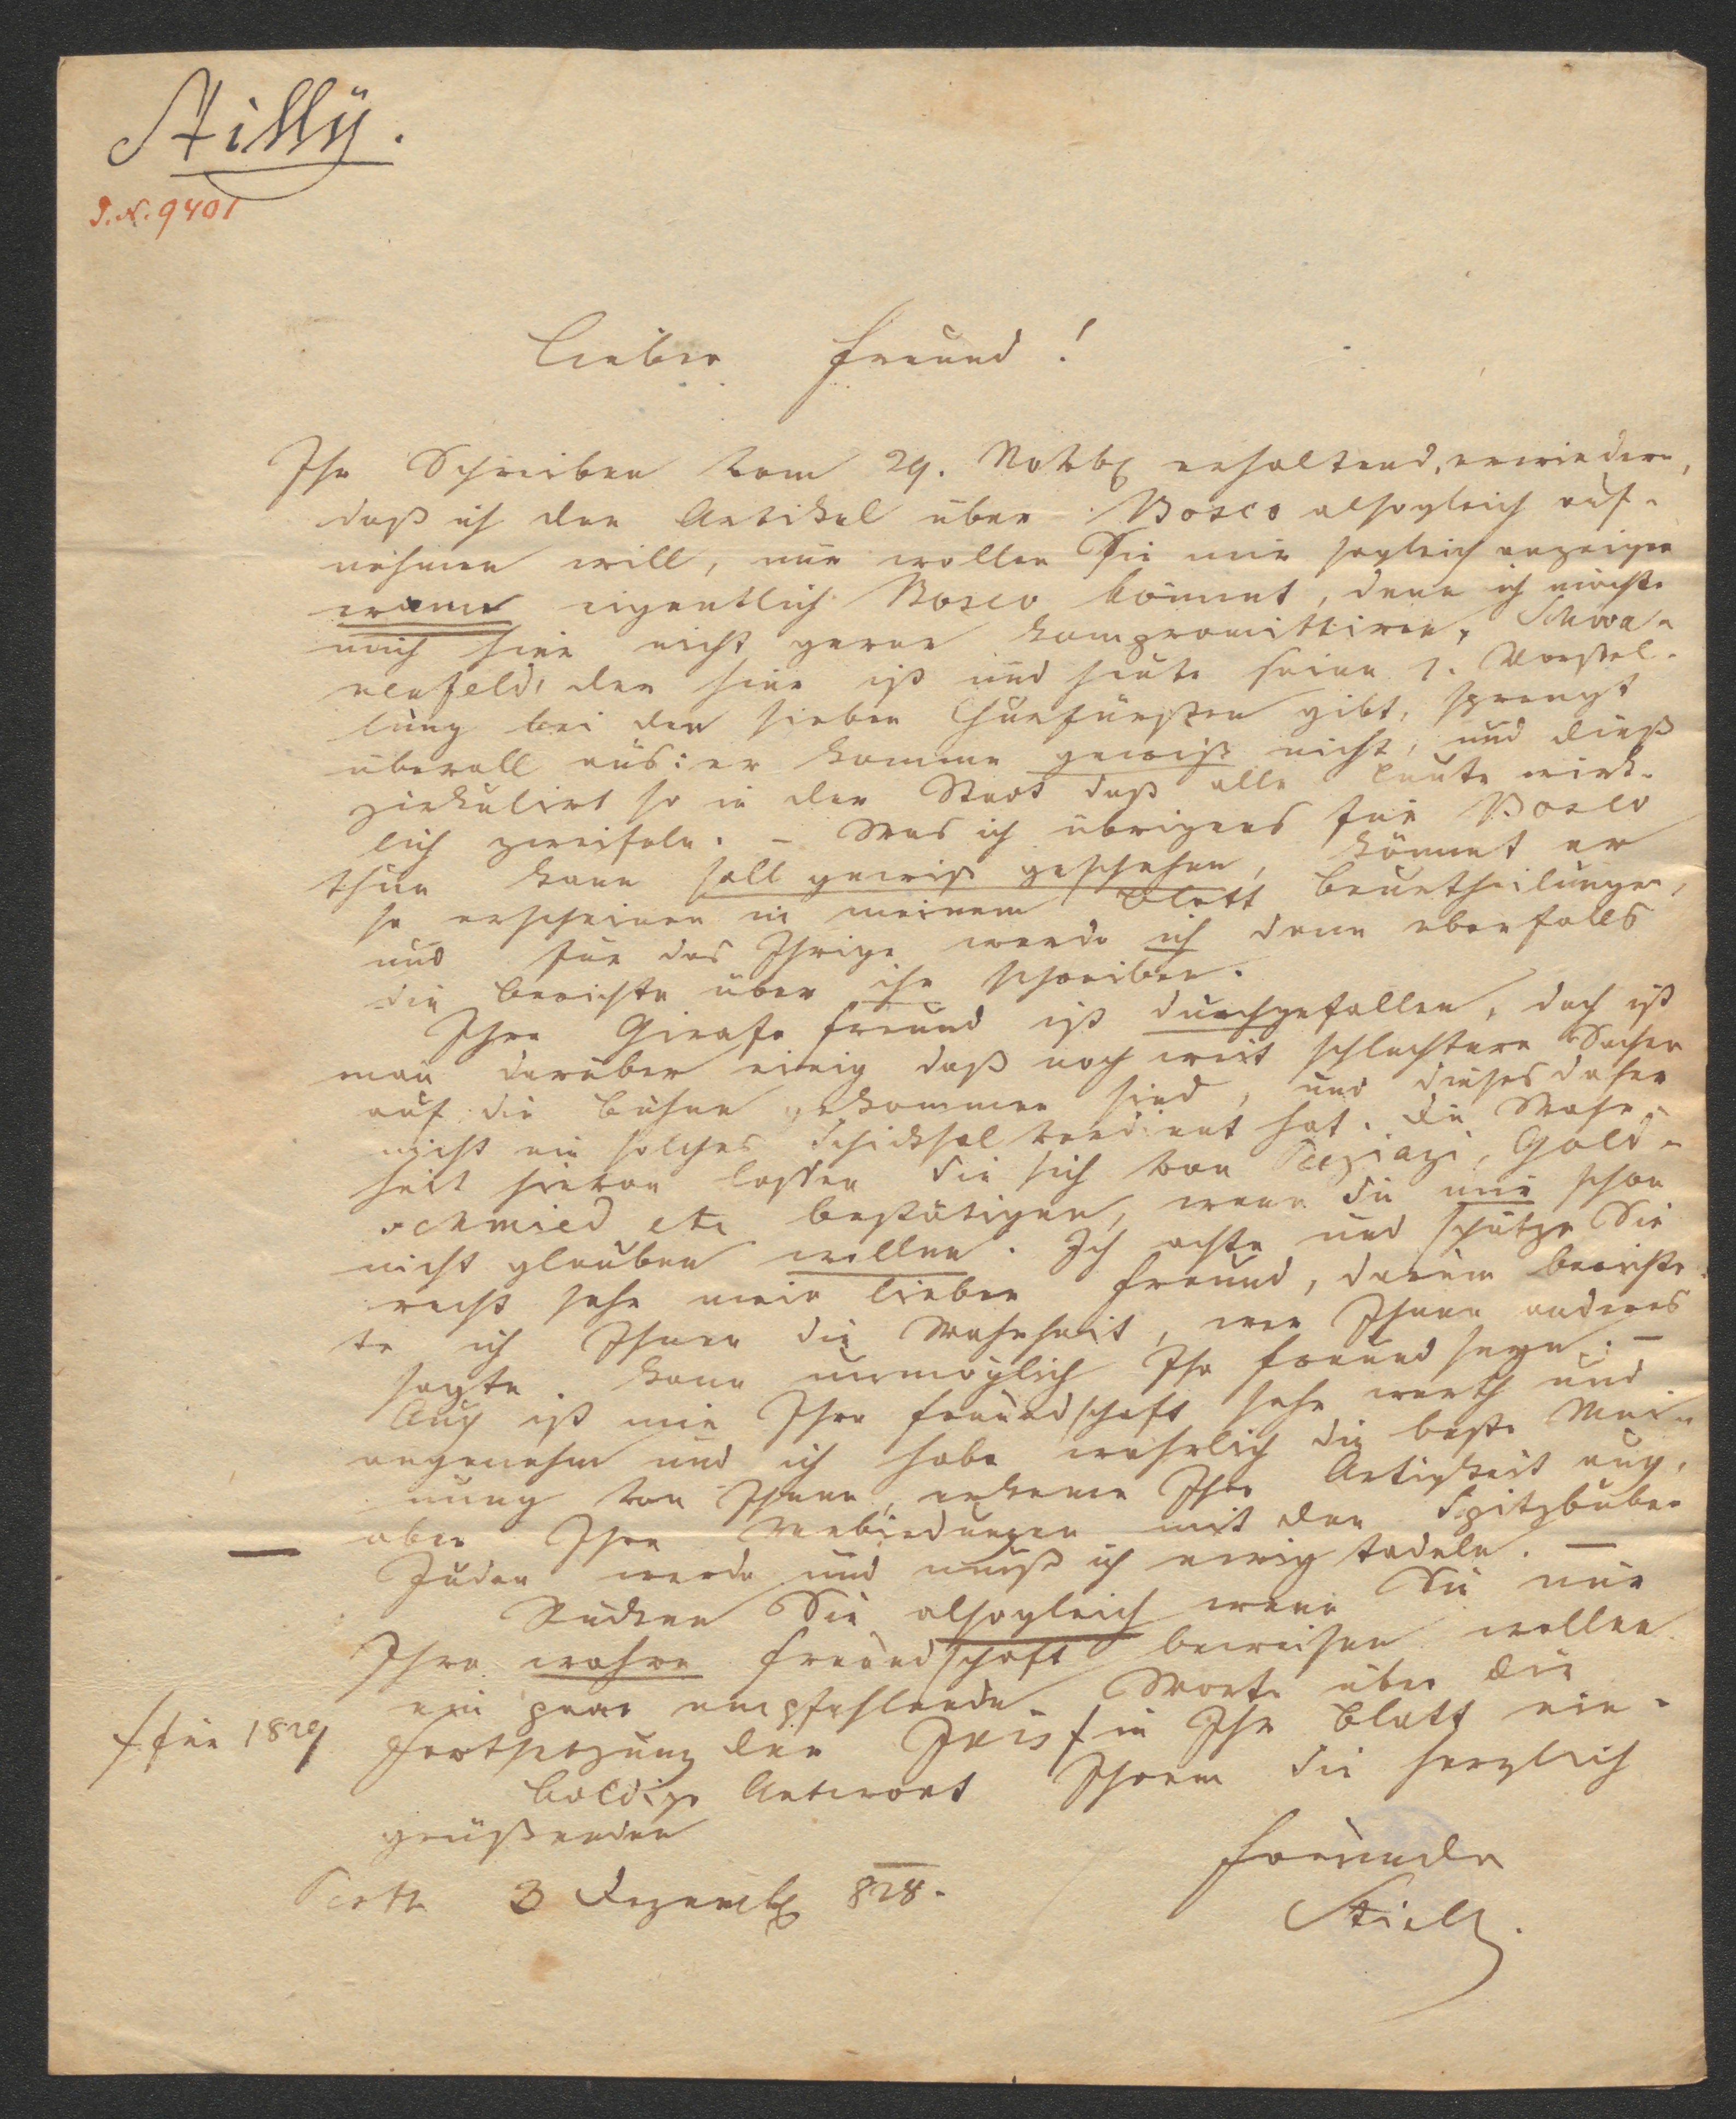 Stilly.
I.N. 9401
Lieber Freund!
Ihr Schreiben vom 29. Novbr erhaltend, erwiedere,
daß ich den Artikel über Bosco alsogleich auf-
nehmen will, nur wollen Sie mir sogleich anzeigen
wann eigentlich Bosco kömmt, denn ich möchte
mich hier nicht gerne kompromittiren, Schwa-
nenfeld, der hier ist und heute seine 1. Vorstel-
lung bei den sieben Churfürsten gibt, sprengt
überall aus: er komme gewiß nicht, und dieß
zirkulirt so in der Stadt daß alle Leute wirk-
lich zweifeln. – Was ich übrigens für Bosco
thun kann soll gewiß geschehen, kömmt er
so erscheinen in meinem Blatt Beurtheilungen,
und für das Ihrige werde ich dann ebenfalls
die Berichte über ihn schreiben.
Ihre Girafe Freund ist durchgefallen, doch ist
man darüber einig daß noch weit schlechtere Sachen
auf die Bühne gekommen sind, und dieses daher
nicht ein solches Schicksal verdient hat. Die Wahr-
heit hievon lassen Sie sich von Goldschmied etc
bestätigen, wenn Sie mir schon
nicht glauben wollen. Ich achte und schätze Sie
recht sehr mein lieber Freund, darum berichte-
te ich Ihnen die Wahrheit, wer Ihnen anderes
sagte. kann unmöglich Ihr Freund seyn. –
Auch ist mir Ihre Freundschaft sehr werth und
angenehm und ich habe wahrlich die beste Mei-
nung von Ihnen, erkenne Ihre Artigkeit auch,
aber Ihre Verbindungen mit den Spitzbuben
Juden werde und muß ich ewig tadeln. –
Rücken Sie alsogleich wenn Sie mir
Ihre wahre Freundschaft beweisen wollen
ein paar empfehlende Worte über die
Fortsetzung der Iris / in Ihr Blatt ein-
/ für 1829
Baldige Antwort Ihrem Sie herzlich
grüßenden
Freunde
Pesth 3 Dezembr 828.
Stilly.